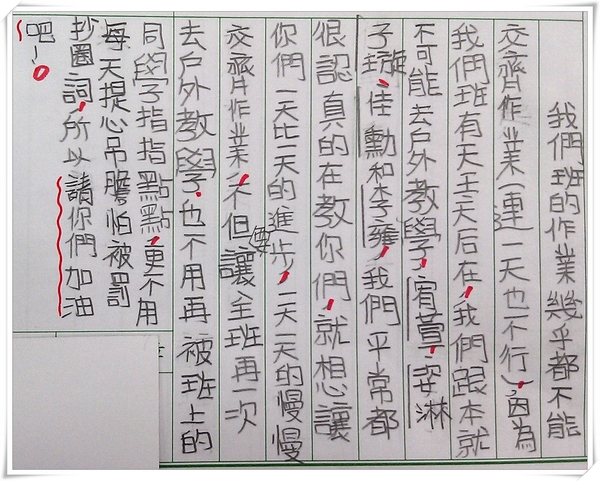 我們班的作業幾乎都不能
交齊作業,連一天也不行,因為
我們班有天王天后在,我們跟本就
不可能去戶外教學,宥萱,姿淋
子璇,佳勳和李雍,我們平常都
很認真的在教你們,就想讓
你們一天比一天的進步,一天一天的慢慢
交齊作業,不但要讓全班再一次
去戶外教學,也不用再被班上的
同學指指點點,更不用
每天提心吊膽怕被罰
抄圈詞,所以請你們加油
吧!